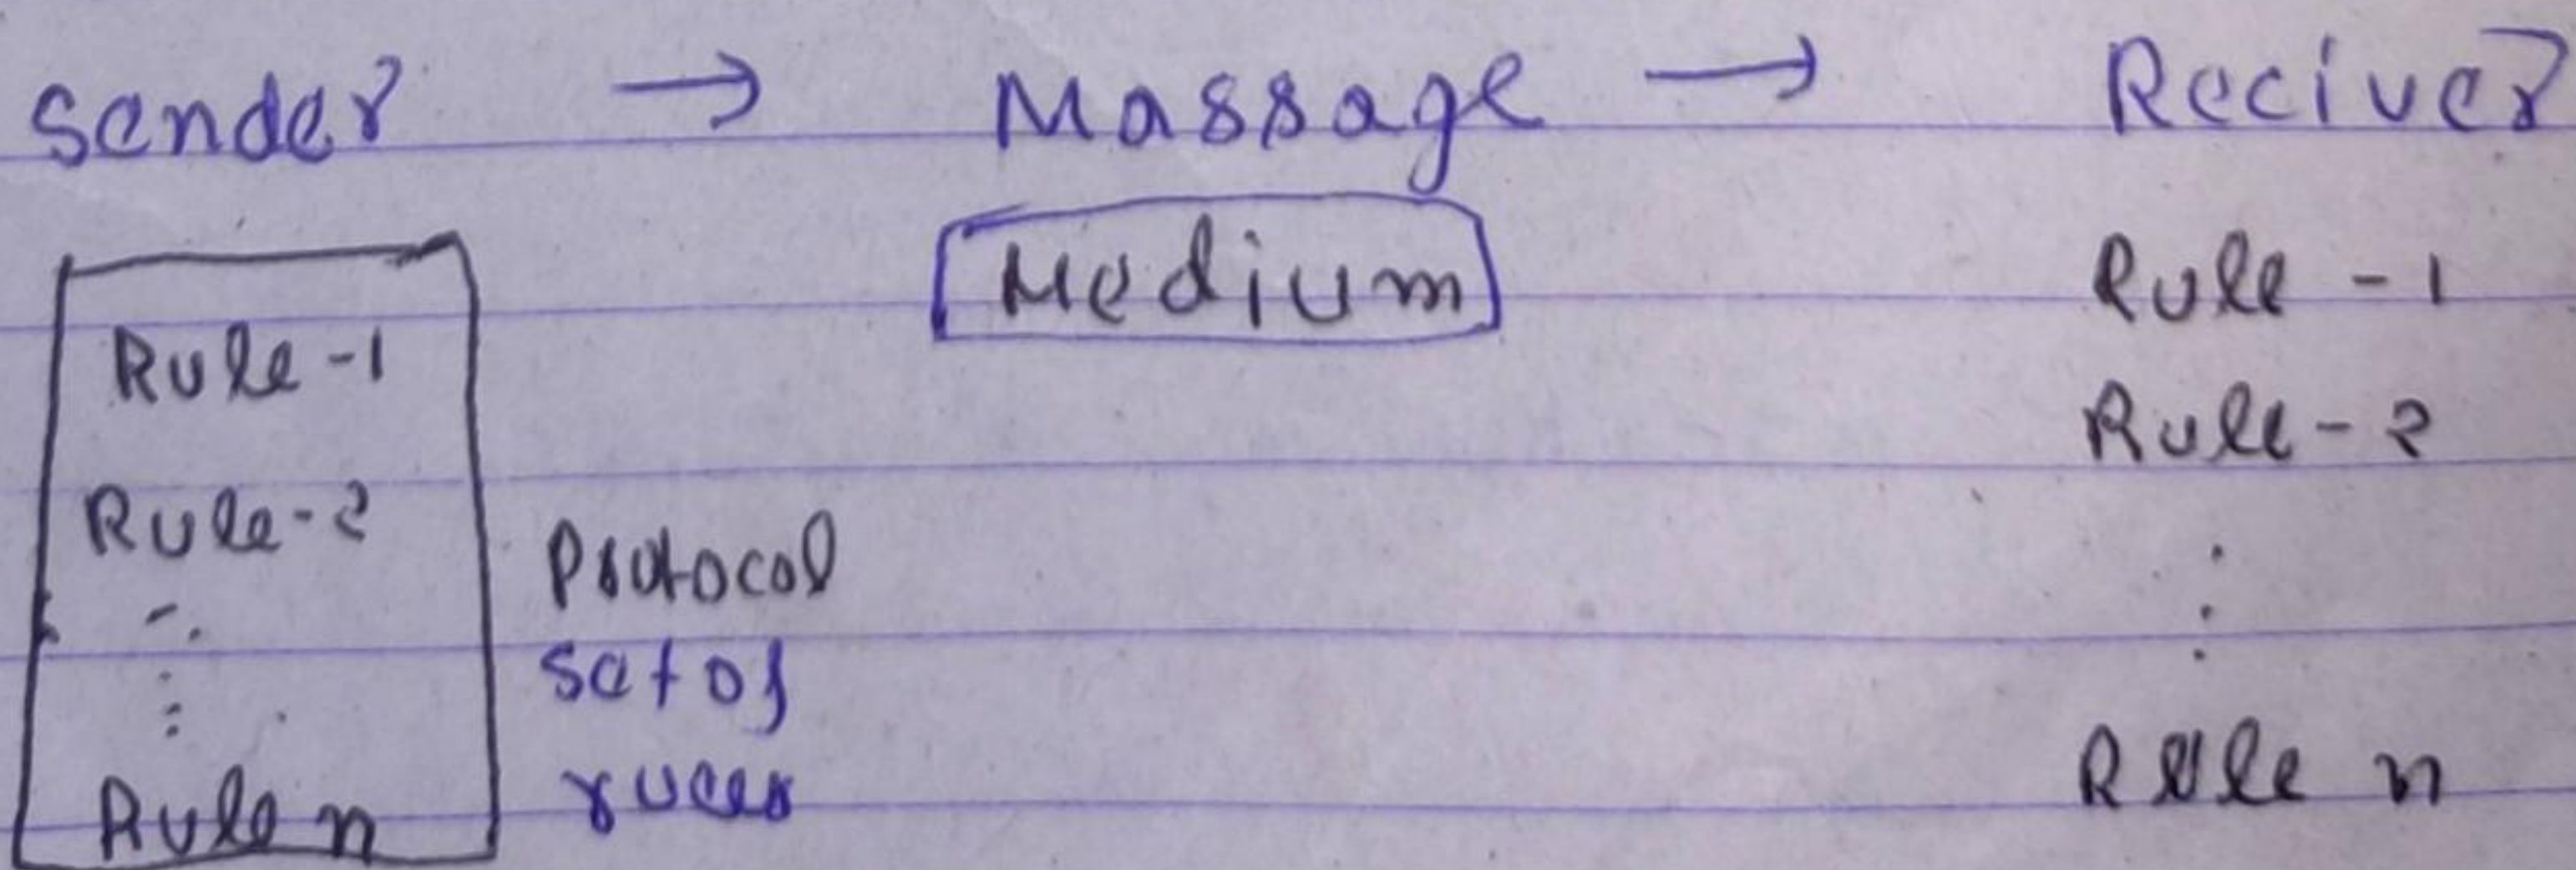 Sender → Massage → Reciver
Medium
Rule-1
Rule-2
Rule n
Protocol
set of
rules
Rule - 1
Rule - 2
Rule n